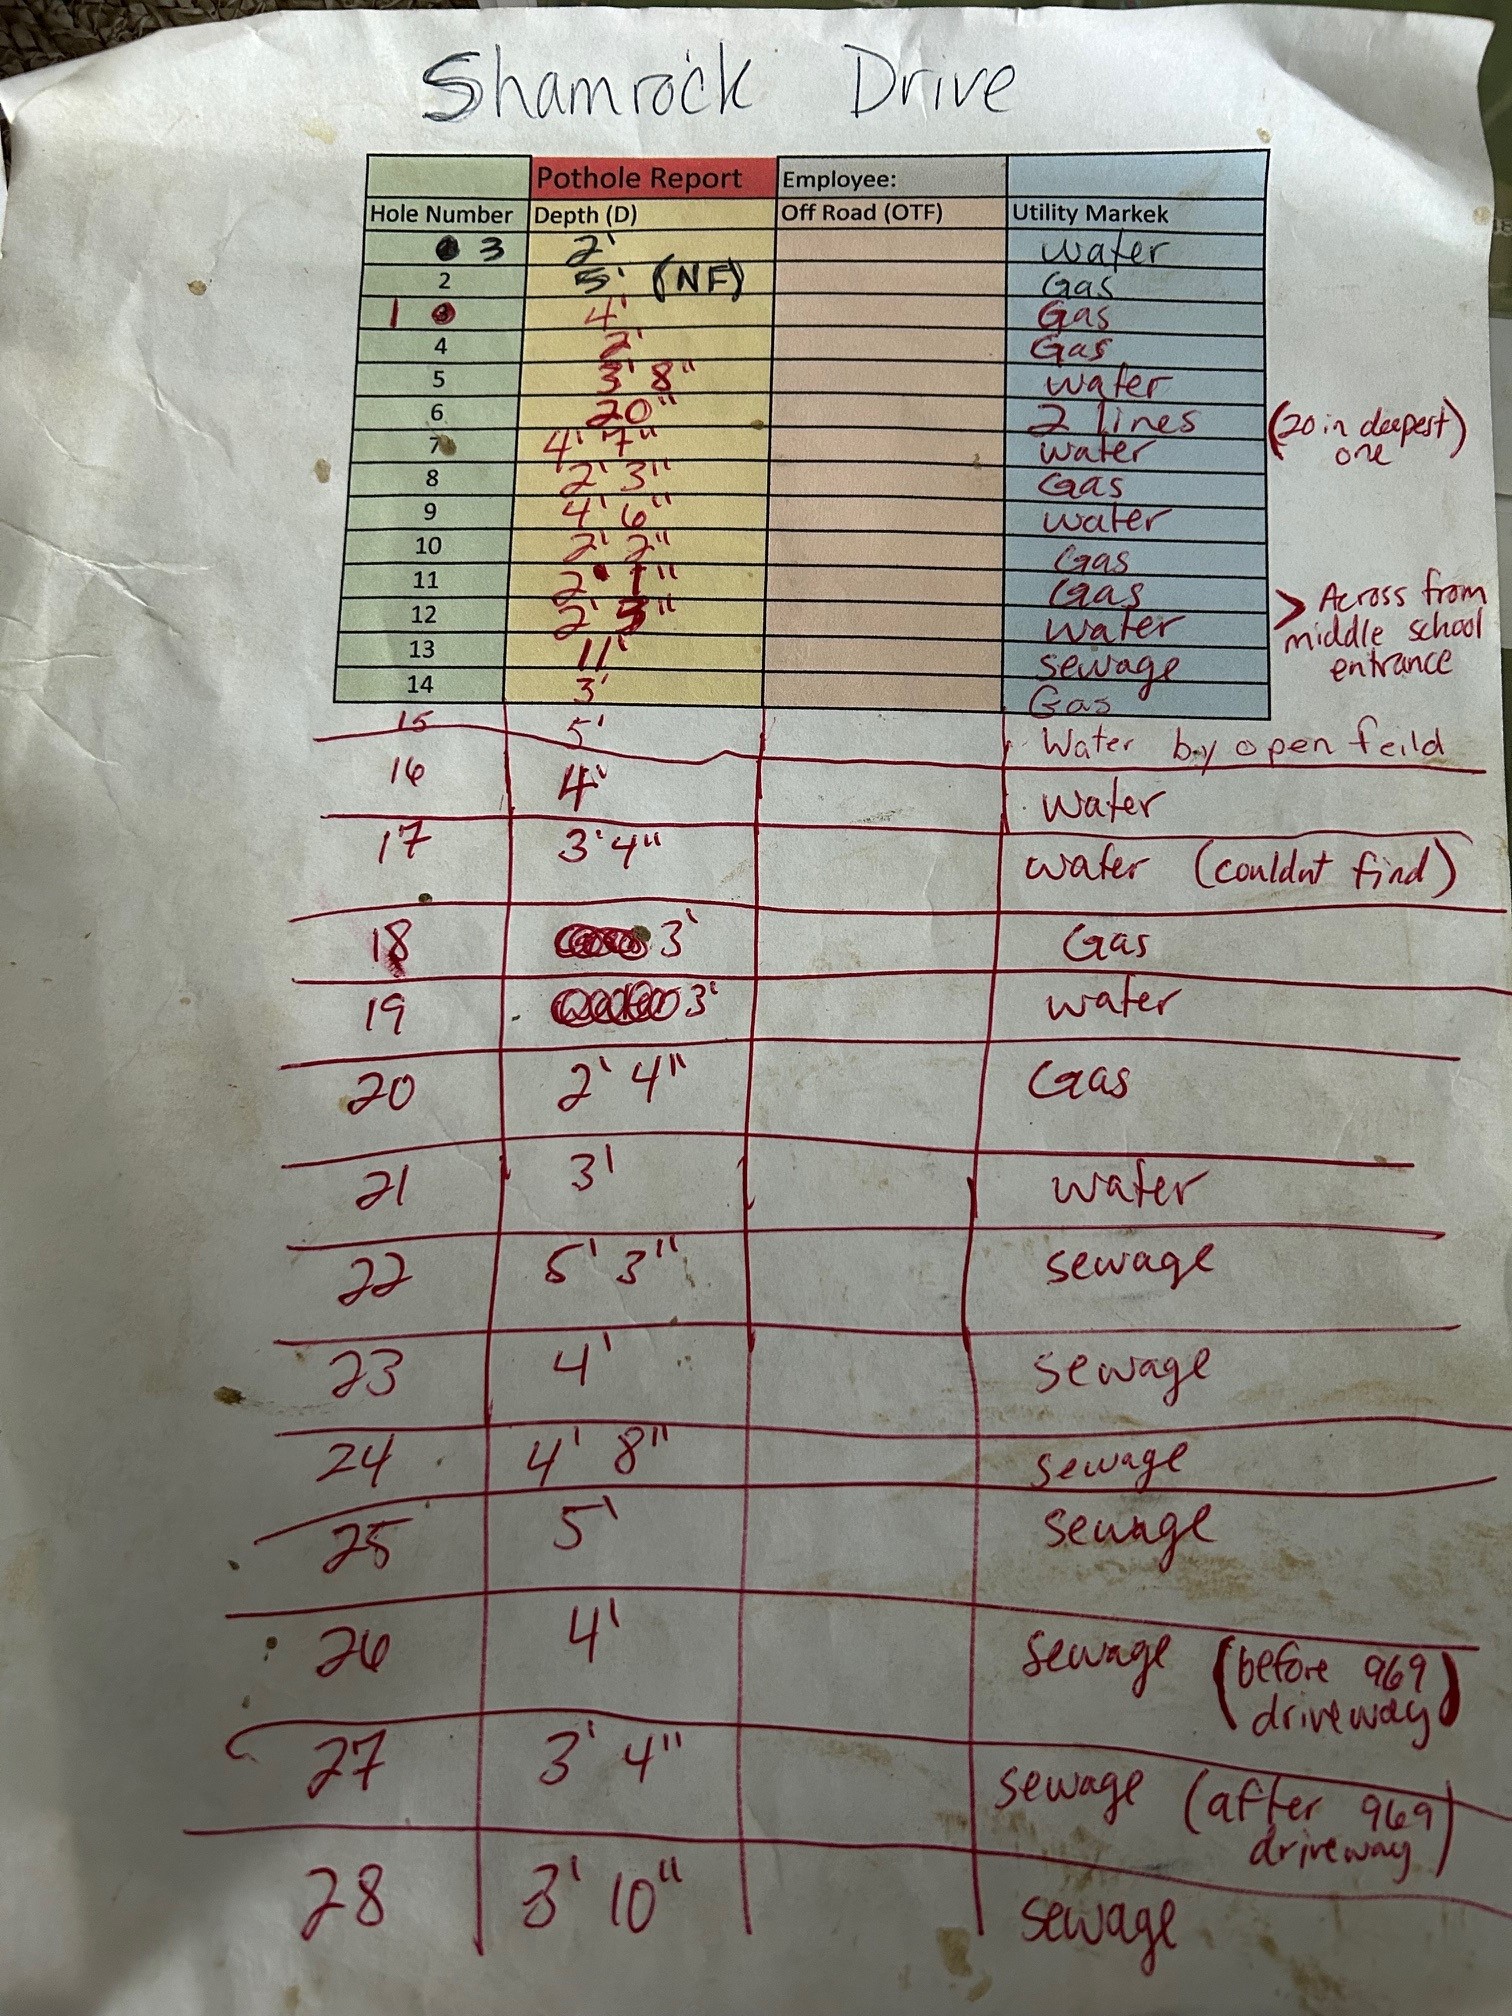 Shamrock Drive
Pothole Report Employee:
Hole Number Depth (D) Off Road (OTF) Utility Markek
3 2' water
2 5' (NF) Gas
1 4' Gas
4 2' Gas
5 3' 8" water
6 20" 2 lines (20 in deepest)
one
7 4' 7" water
8 2' 3" Gas
9 4' 6" water
10 2' 2" Gas
11 2' 1" Gas > Across from
12 2' 3" water middle school
13 11' sewage entrance
14 3' Gas
15 5' Water by open feild
16 4' water
17 3' 4" water (couldnt find)
18 3' Gas
19 3' water
20 2' 4" Gas
21 3' water
22 5' 3" sewage
23 4' sewage
24 4' 8" sewage
25 5' sewage
26 4' sewage (before 969
driveway)
27 3' 4" sewage (after 969
driveway)
28 3' 10" sewage